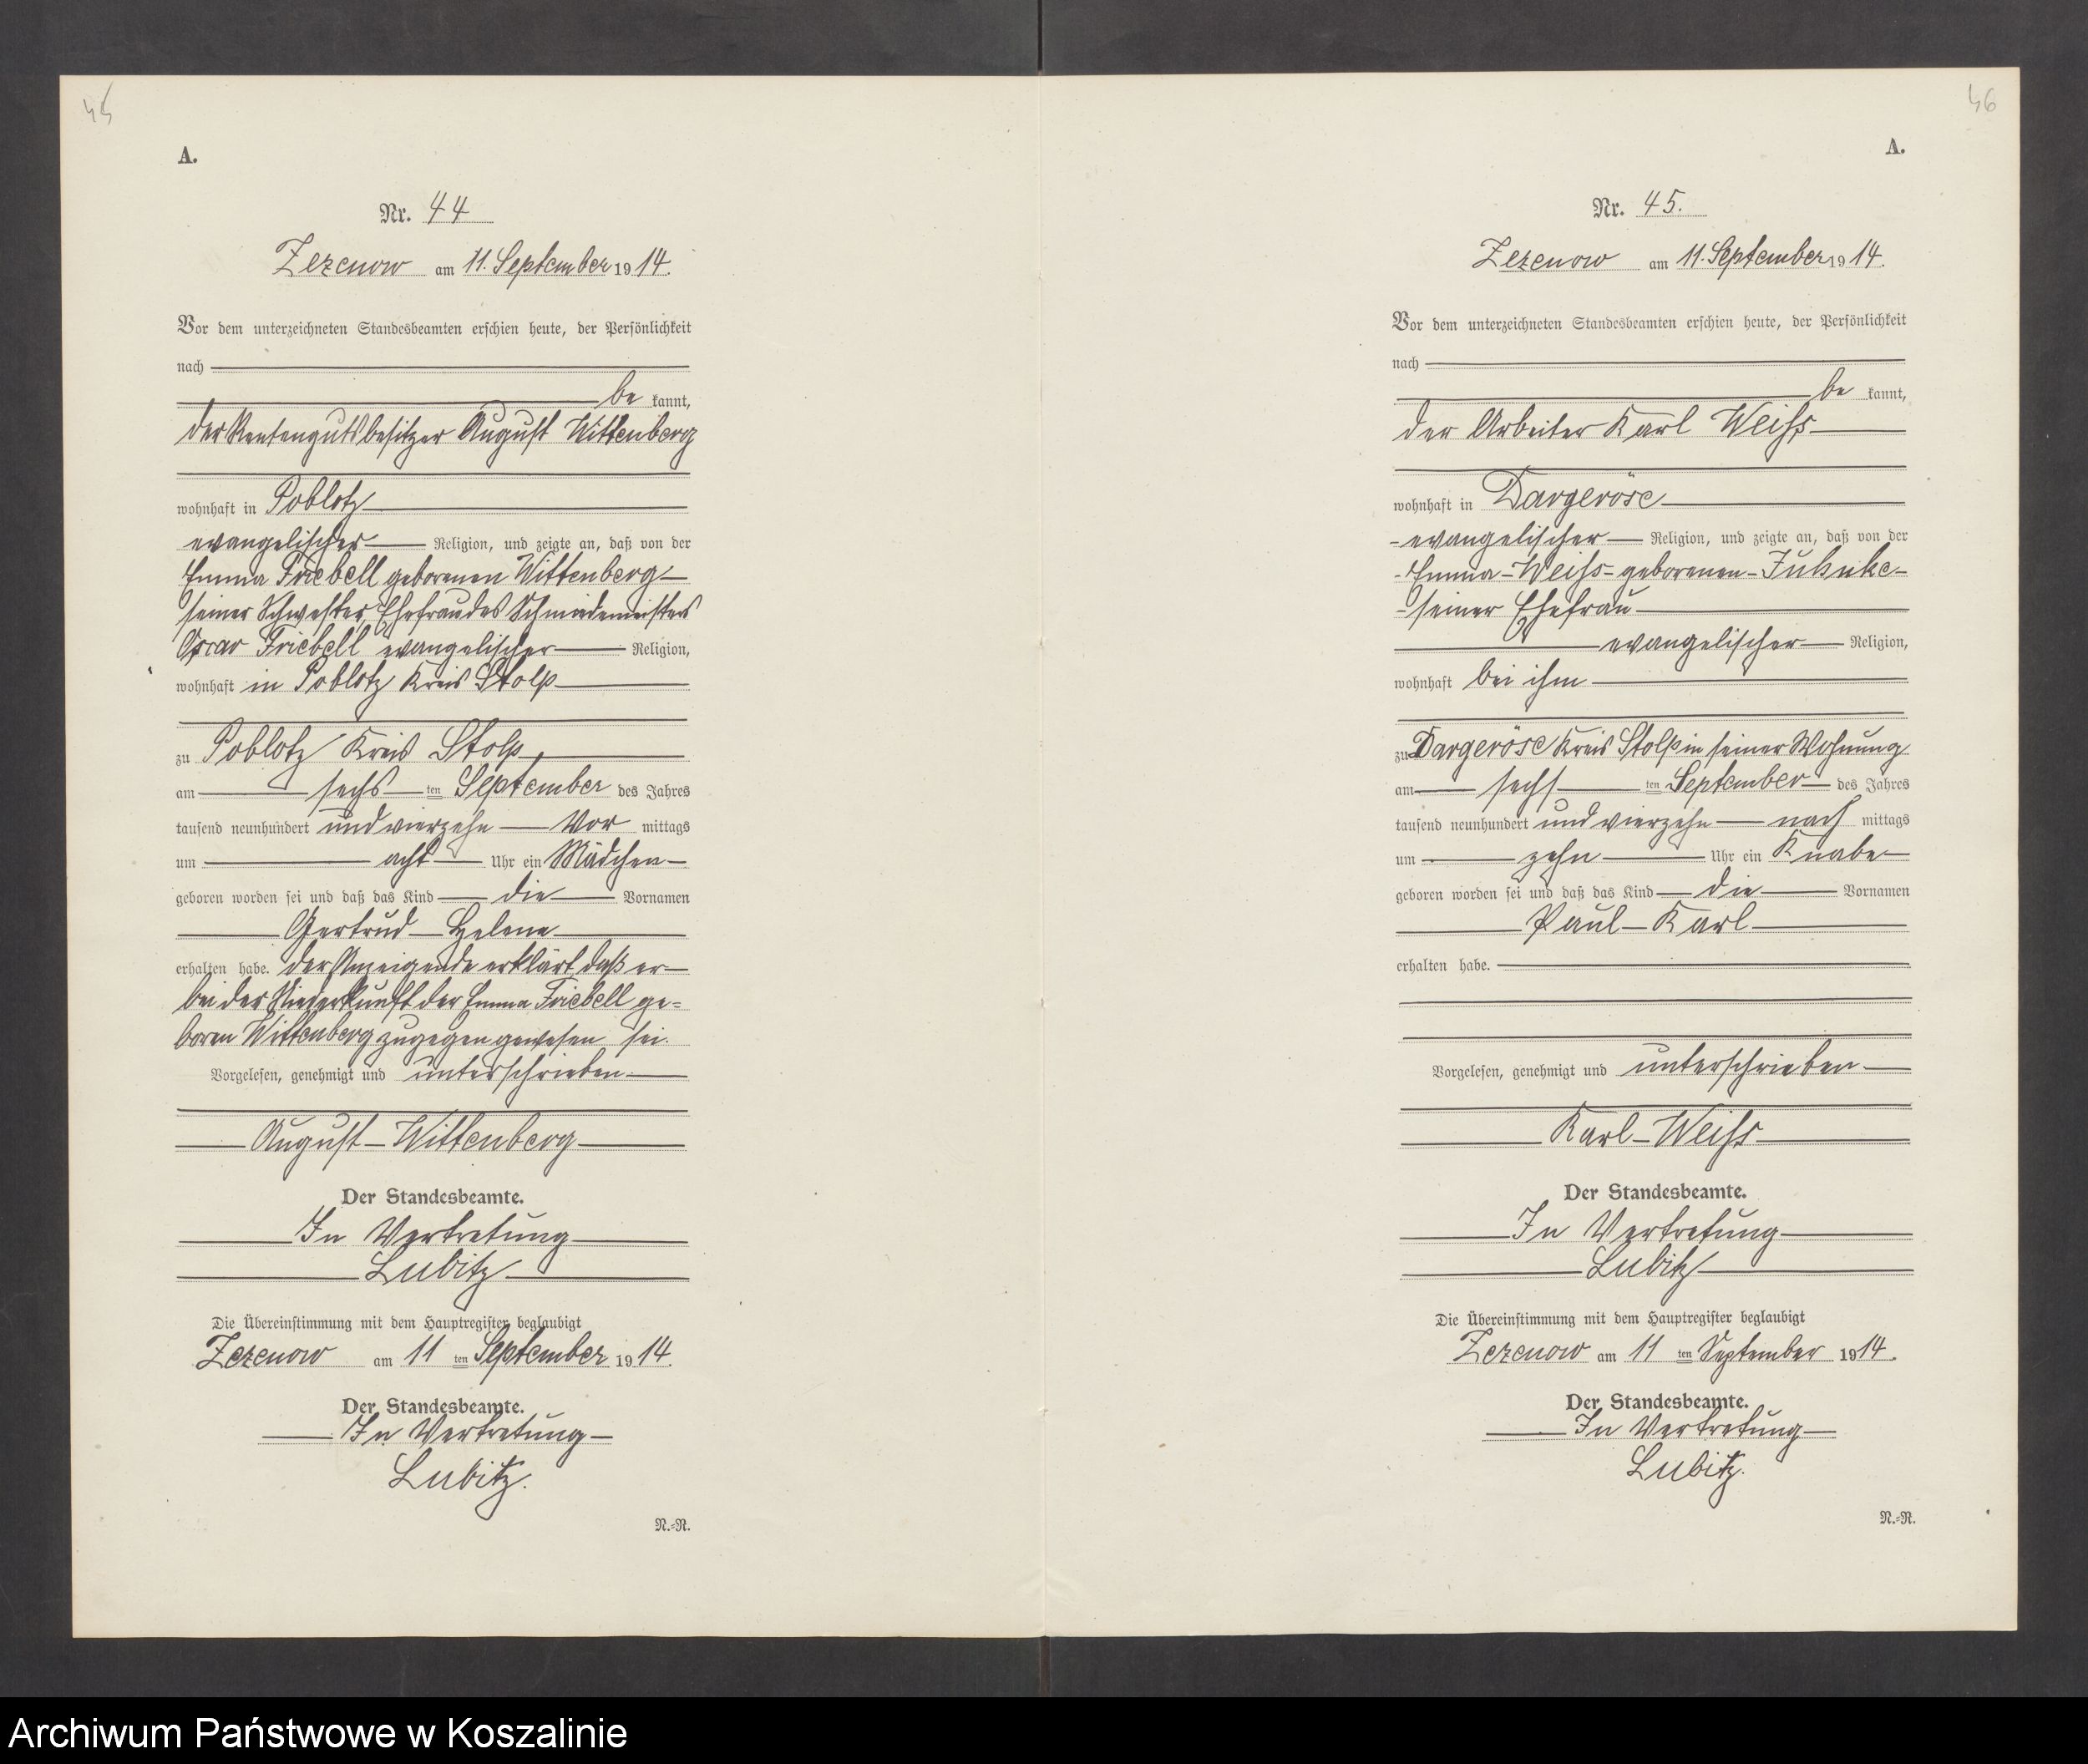 45
A.
Nr. 44
Zezenow am 11. September 1914.
Vor dem unterzeichneten Standesbeamten erschien heute, der Persönlichkeit
nach
be kannt,
der Rentengutsbesitzer August Wittenberg
wohnhaft in Poblotz
evangelischer Religion, und zeigte an, daß von der
Emma Friebell geborenen Wittenberg
seiner Schwester, Ehefrau des Schmiedemeisters
Oscar Friebell evangelischer Religion,
wohnhaft in Poblotz Kreis Stolp
zu Poblotz Kreis Stolp
am sechs ten September des Jahres
tausend neunhundert und vierzehn Vor mittags
um acht Uhr ein Mädchen
geboren worden sei und daß das Kind die Vornamen
Gertrud Helene
erhalten habe. Der Anzeigende erklärt daß er
bei der Niederkunft der Emma Friebell ge=
boren Wittenberg zugegen gewesen sei.
Vorgelesen, genehmigt und unterschrieben
August Wittenberg
Der Standesbeamte.
In Vertretung
Lubitz
Die Übereinstimmung mit dem Hauptregister beglaubigt
Zezenow am 11 ten September 1914.
Der Standesbeamte.
In Vertretung
Lubitz.
N.=R.
46
A.
Nr. 45.
Zezenow am 11. September 1914.
Vor dem unterzeichneten Standesbeamten erschien heute, der Persönlichkeit
nach
be kannt,
der Arbeiter Karl Weiß
wohnhaft in Dargeröse
evangelischer Religion, und zeigte an, daß von der
Emma Weiß geborenen Juhnke
seiner Ehefrau
evangelischer Religion,
wohnhaft bei ihm
zu Dargeröse Kreis Stolp in seiner Wohnung
am sechs ten September des Jahres
tausend neunhundert und vierzehn nach mittags
um zehn Uhr ein Knabe
geboren worden sei und daß das Kind die Vornamen
Paul Karl
erhalten habe.
Vorgelesen, genehmigt und unterschrieben
Karl Weiß
Der Standesbeamte.
In Vertretung
Lubitz
Die Übereinstimmung mit dem Hauptregister beglaubigt
Zezenow am 11 ten September 1914.
Der Standesbeamte.
In Vertretung
Lubitz.
N.=R.
Archiwum Państwowe w Koszalinie